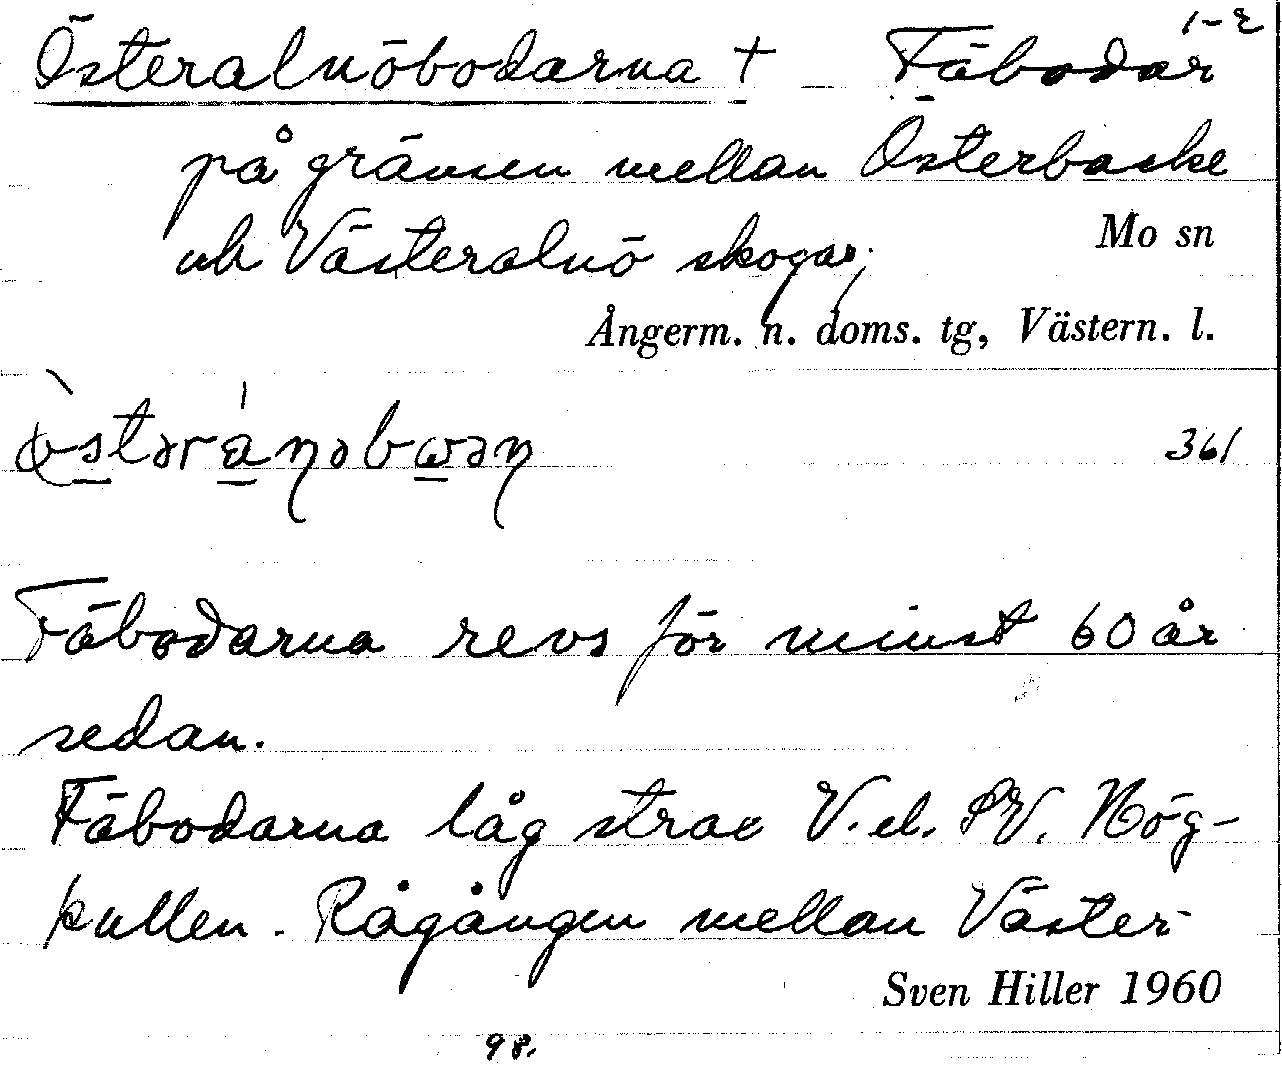 1-2
Österalnöbodarna † Fäbodar
på gränsen mellan Österbacke
och Västeralnö skogar.
Mo sn
Ångerm. n. doms. tg, Västern. l.
361
Fäbodarna revs för minst 60 år
sedan.
Fäbodarna låg strax V. el. SV. Hög-
kullen. Rågången mellan Väster-
Sven Hiller 1960
98.